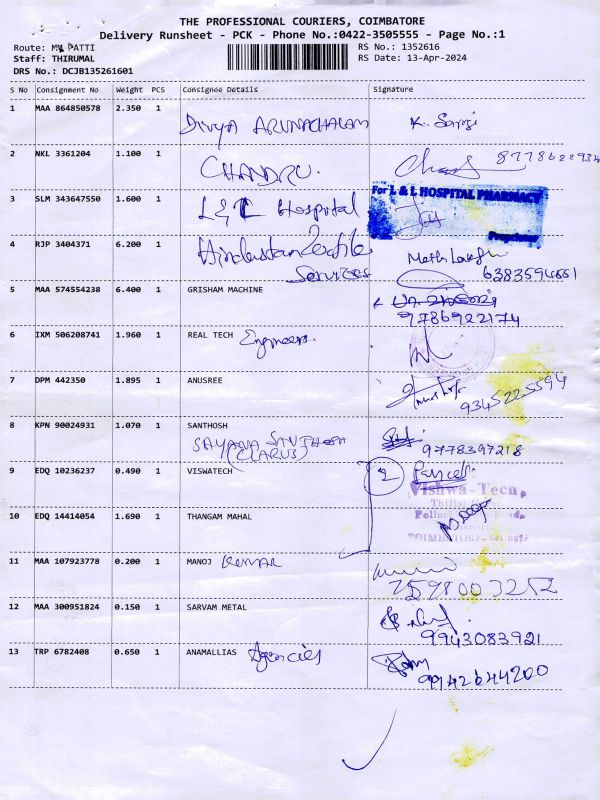 THE PROFESSIONAL COURIERS, COIMBATORE
Delivery Runsheet - PCK - Phone No.:0422-3505555 - Page No.:1
Route: MV PATTI
Staff: THIRUMAL
DRS No.: DCJB135261601
RS No.: 1352616
RS Date: 13-Apr-2024
S No Consignment No Weight PCS Consignee Details Signature
1 MAA 864850578 2.350 1 DIVYA ARUNACHALAM K.
2 NKL 3361204 1.100 1 CHANDRU. 8778622934
3 SLM 343647550 1.600 1 L&L Hospital
For L & L HOSPITAL PHARMACY
Proprietor
4 RJP 3404371 6.200 1 Hindustan Textile
Services 6383594661
5 MAA 574554238 6.400 1 GRISHAM MACHINE
9786922174
6 IXM 506208741 1.960 1 REAL TECH Engineers.
7 DPM 442350 1.895 1 ANUSREE 9345225594
8 KPN 90024931 1.070 1 SANTHOSH
SAYANA SANTHOSH
(CLARUS) 9778397218
9 EDQ 10236237 0.490 1 VISWATECH 2 Parcel
Vishwa-Tech,
10 EDQ 14414054 1.690 1 THANGAM MAHAL
COIMBATORE
11 MAA 107923778 0.200 1 MANOJ Kumar
7598003252
12 MAA 300951824 0.150 1 SARVAM METAL
9943083921
13 TRP 6782408 0.650 1 ANAMALLIAS Agencies
9942644200